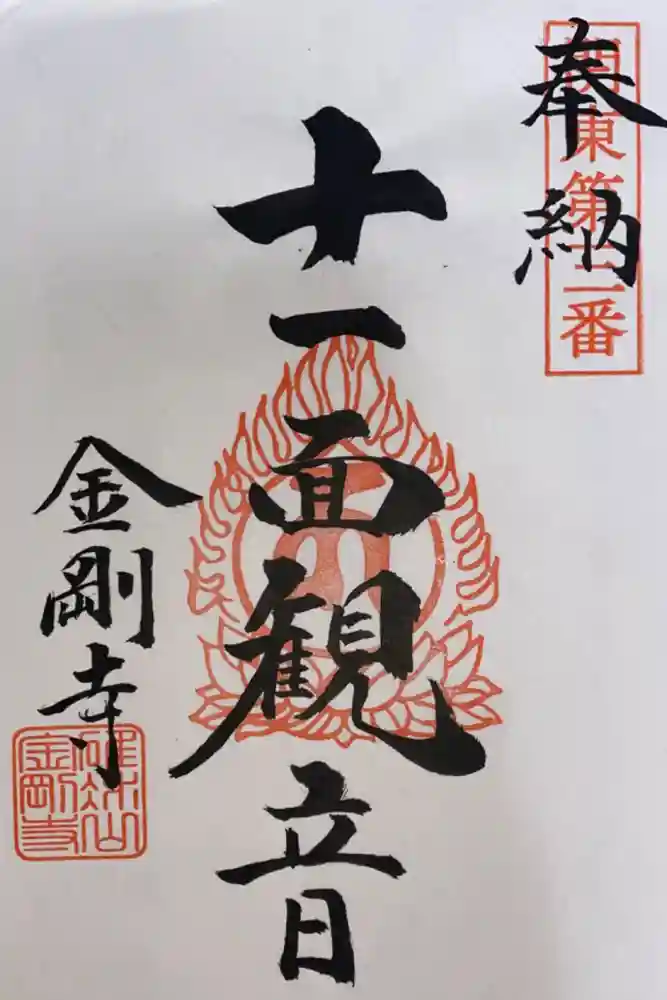 奉納
東第
番
十一面観音
金剛寺
金剛寺